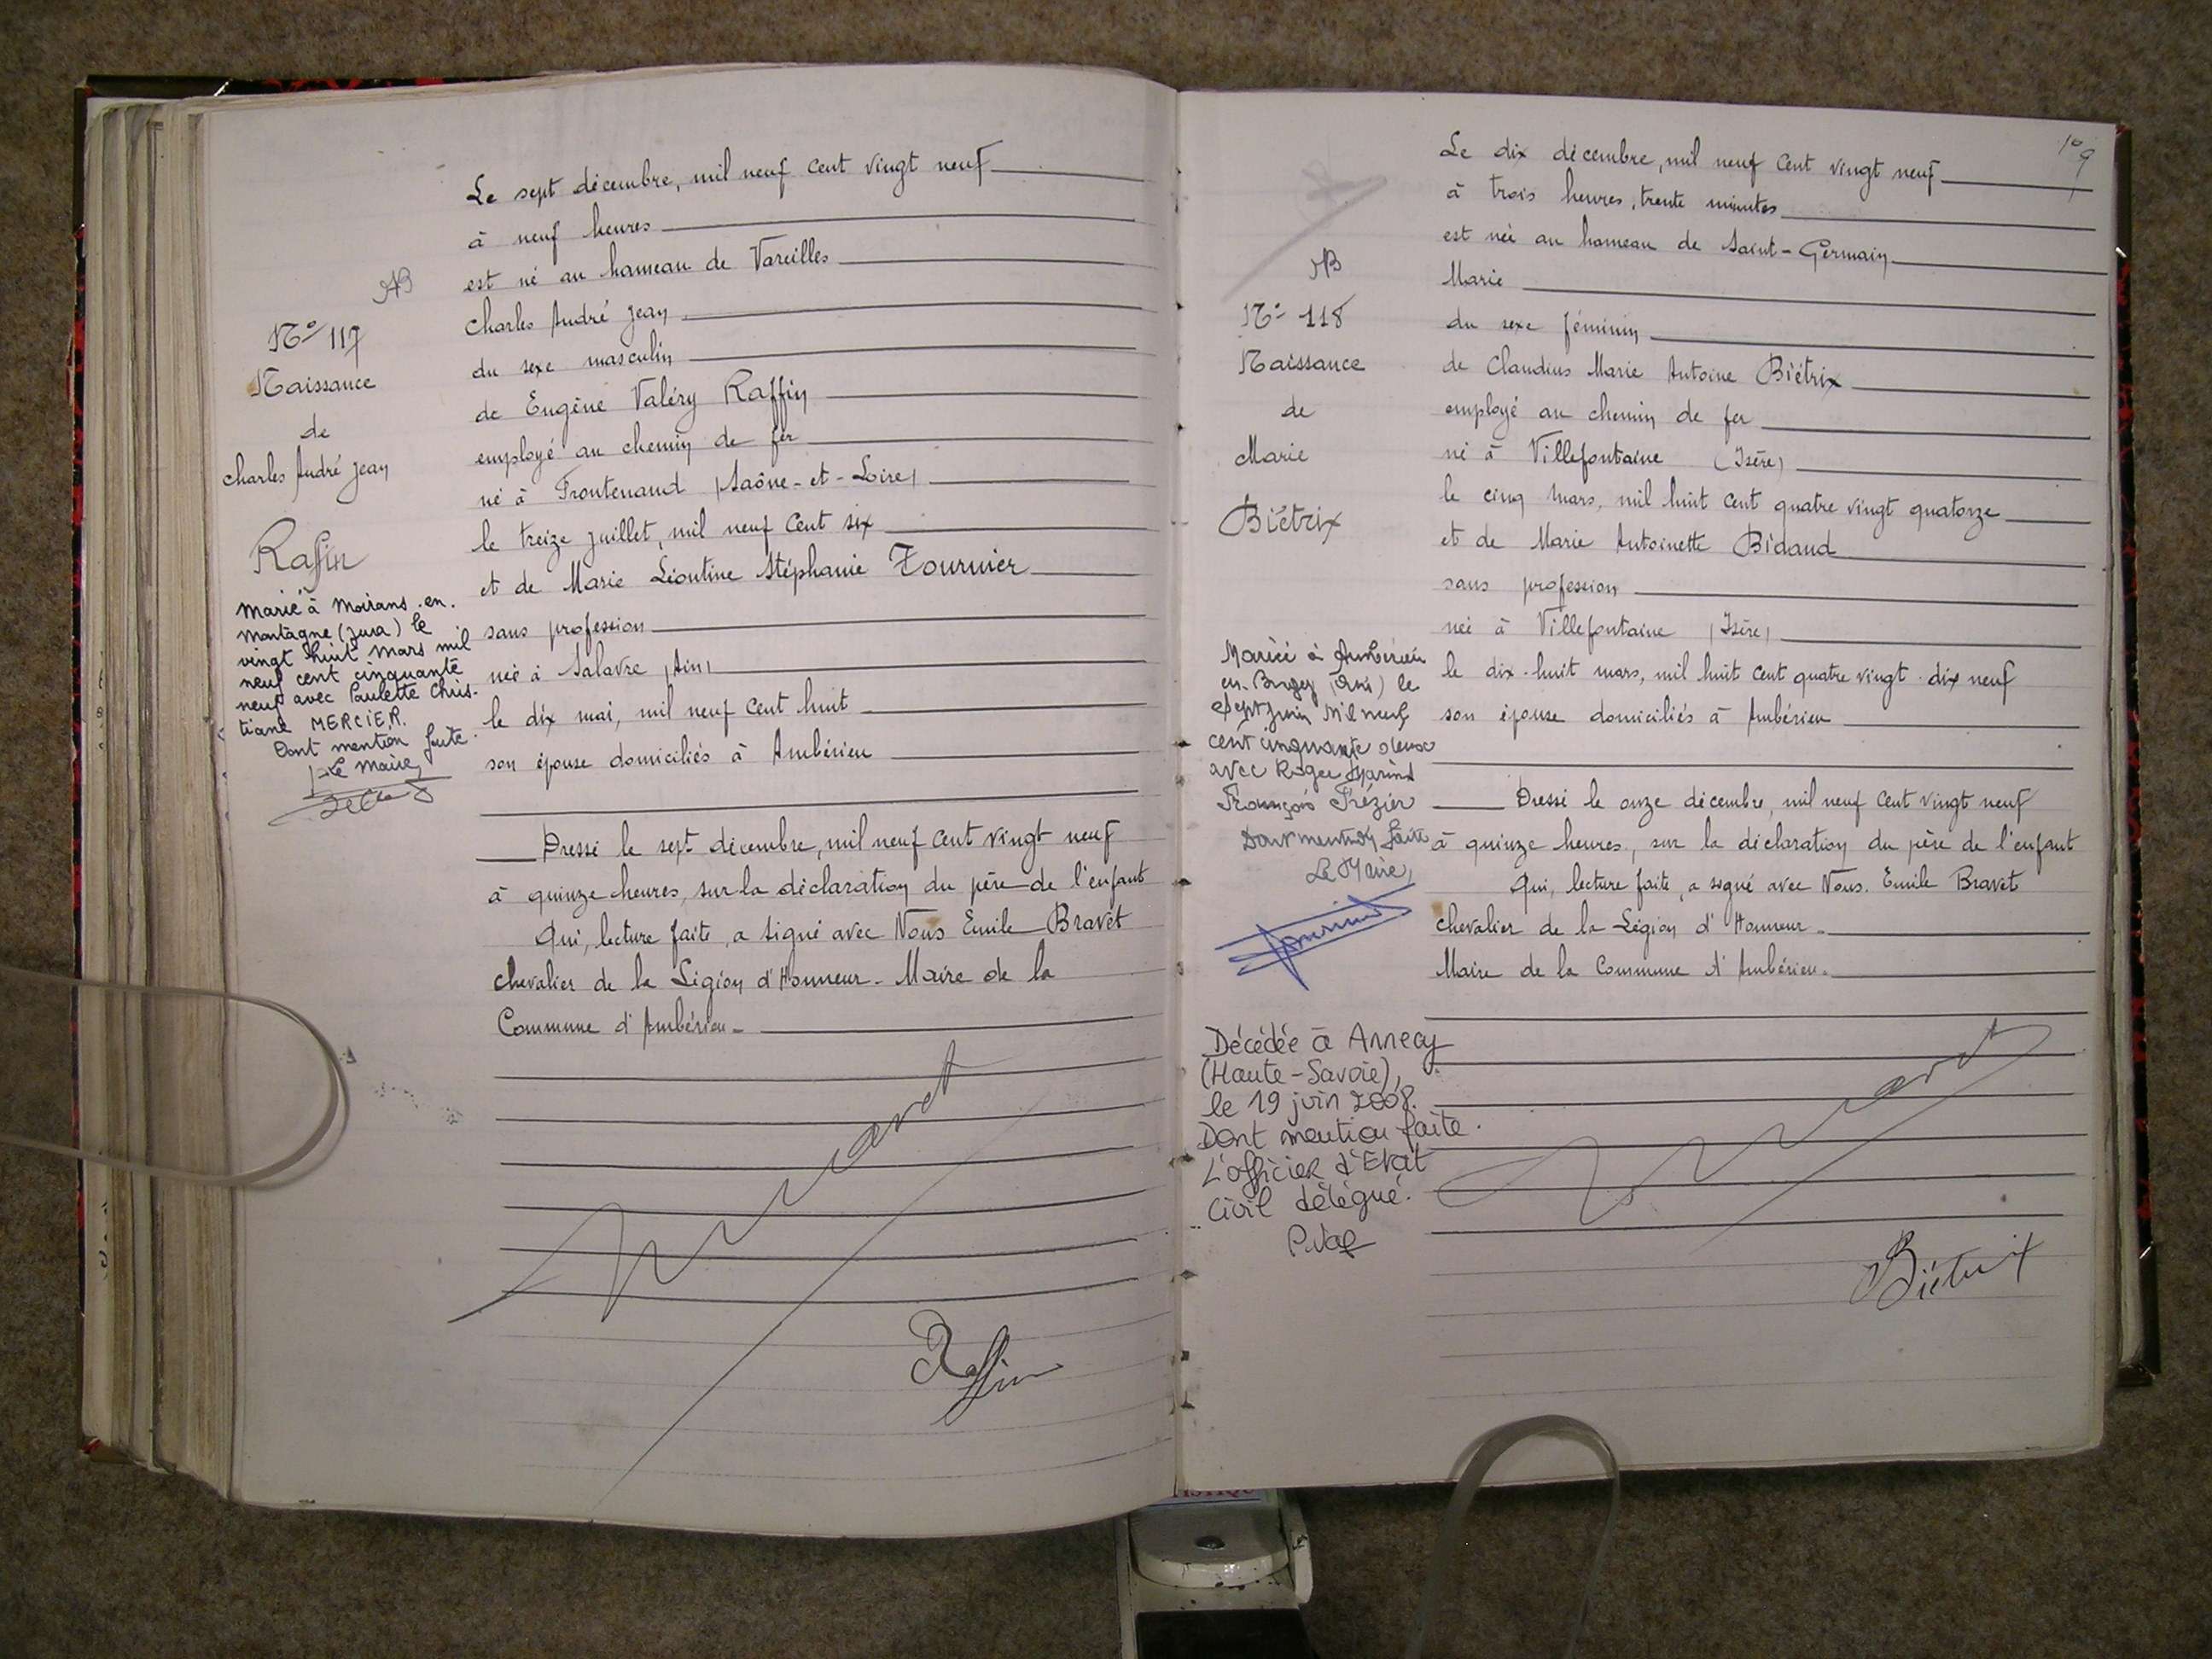 NB
N° 117
Naissance
de
Charles André Jean
Raffin
Marié à Moirans-en-
Montagne (Jura) le
vingt huit mars mil
neuf cent cinquante
neuf avec Paulette Chris-
tiane MERCIER.
Dont mention faite.
Le Maire,
Le sept décembre, mil neuf cent vingt neuf
à neuf heures
est né au hameau de Vareilles
Charles André Jean
du sexe masculin
de Eugène Valéry Raffin
employé au chemin de fer
né à Frontenaud (Saône-et-Loire)
le treize juillet, mil neuf cent six
et de Marie Léontine Stéphanie Fournier
sans profession
née à Salavre (Ain)
le dix mai, mil neuf cent huit
son épouse domiciliés à Ambérieu
Dressé le sept décembre, mil neuf cent vingt neuf
à quinze heures, sur la déclaration du père de l'enfant
Qui, lecture faite, a signé avec Nous Emile Bravet
chevalier de la Légion d'Honneur - Maire de la
Commune d'Ambérieu.
Raffin
109
NB
N° 118
Naissance
de
Marie
Biétrix
Mariée à Ambérieu
en-Bugey (Ain) le
sept juin mil neuf
cent cinquante deux
avec Roger Marius
François Trézier
Dont mention faite
Le Maire,
Décédée à Annecy
(Haute-Savoie),
le 19 juin 2008.
Dont mention faite.
L'officier d'Etat
Civil délégué.
Le dix décembre, mil neuf cent vingt neuf
à trois heures, trente minutes
est née au hameau de Saint-Germain
Marie
du sexe féminin
de Claudius Marie Antoine Biétrix
employé au chemin de fer
né à Villefontaine (Isère)
le cinq mars, mil huit cent quatre vingt quatorze
et de Marie Antoinette Bidaud
sans profession
née à Villefontaine (Isère)
le dix-huit mars, mil huit cent quatre vingt-dix neuf
son épouse domiciliés à Ambérieu
Dressé le onze décembre, mil neuf cent vingt neuf
à quinze heures, sur la déclaration du père de l'enfant
Qui, lecture faite, a signé avec Nous. Emile Bravet
chevalier de la Légion d'Honneur.
Maire de la Commune d'Ambérieu.
Biétrix